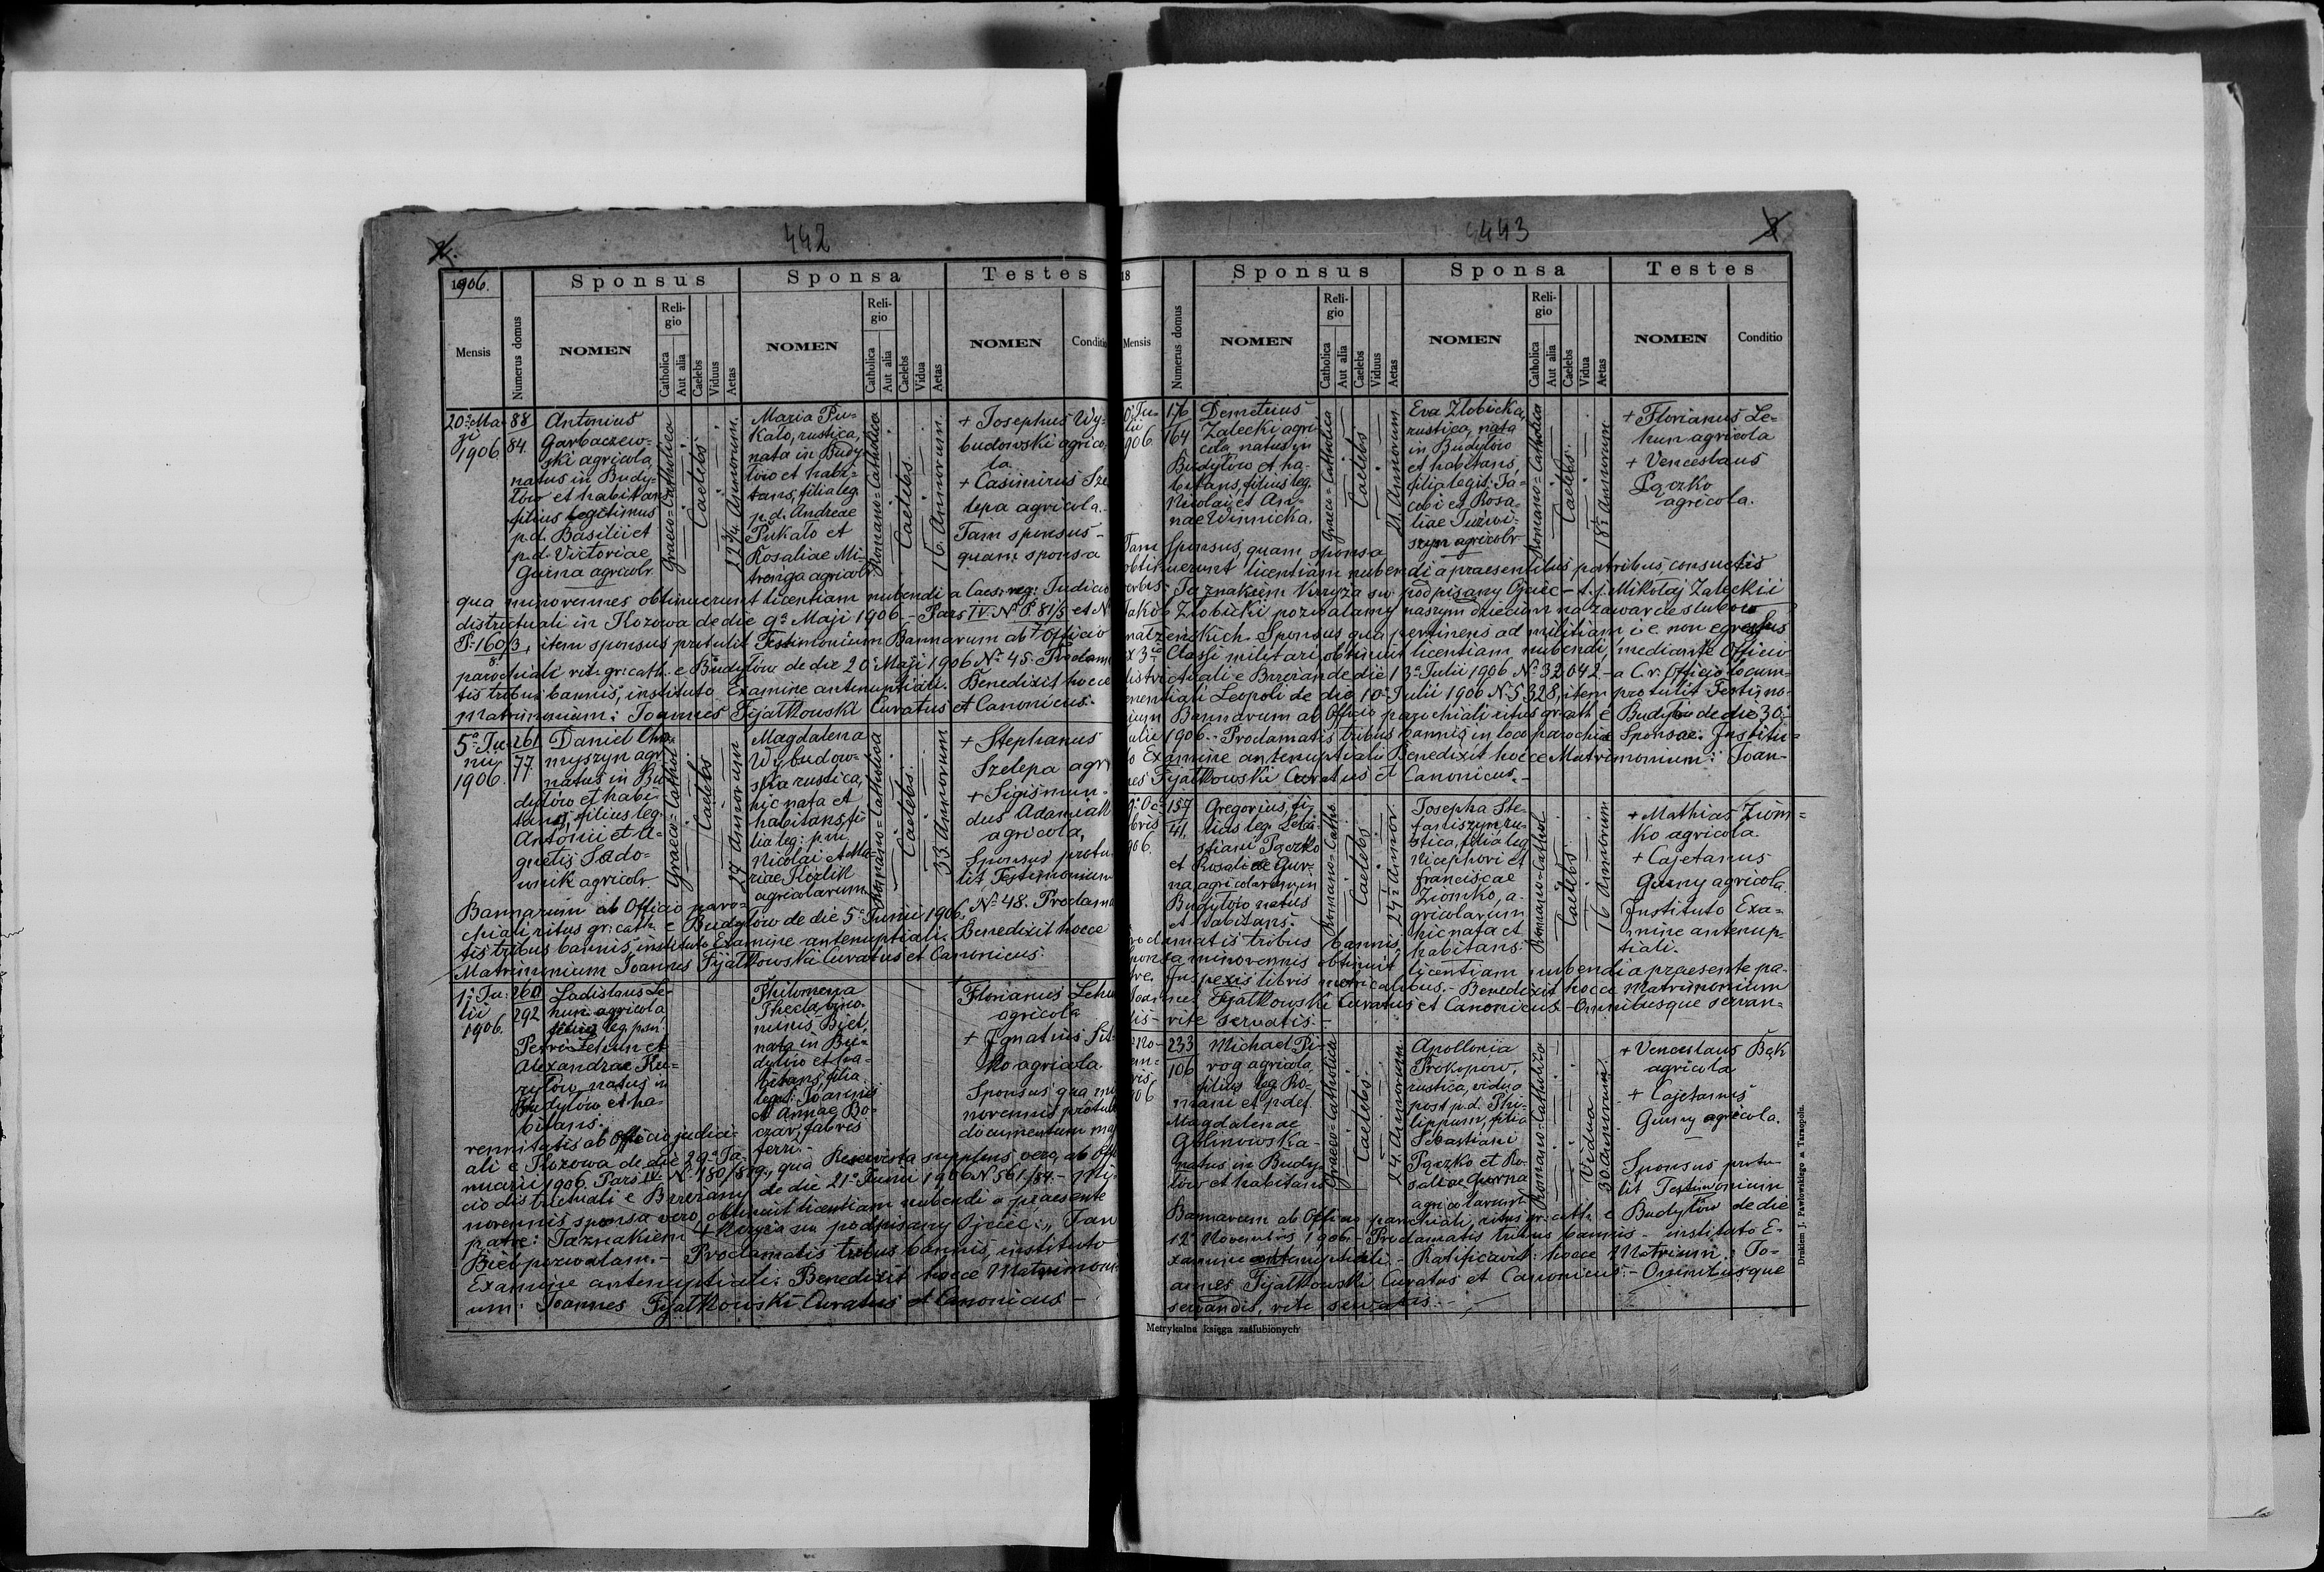 442
2.
1906.
Mensis
Numerus domus
Sponsus
NOMEN
Religio
Catholica
Aut alia
Caelebs
Viduus
Aetas
Sponsa
NOMEN
Religio
Catholica
Aut alia
Caelebs
Vidua
Aetas
Testes
NOMEN
Conditio
20ª Ma-
ji
1906
88
84.
Antonius
Garbaczew-
ski agricola,
natus in Budy-
łów et habitans
filius legitimus
p.d. Basilii et
p.d. Victoriae
Guina agricolr.
Graeco-Catholica
Caelebs
22 3/4 Annorum.
Maria Pu-
kało, rustica,
nata in Budy-
łów et habi-
tans, filia leg.
p.d. Andreae
Pukało et
Rosaliae Mi-
trenga agricolr.
Romano-Catholica
Caelebs.
16. Annorum.
+ Josephus Wy-
budowski agrico-
la.
+ Casimirus Sze
lepa agricola.
Tam sponsus-
quam sponsa
qua minorennes obtinuerunt licentiam nubendi a Caes. reg. Judicio
districtuali in Kozowa de die 9ª Maji 1906 - Pars IV. Nº P. 81/5 et Nº
P. 160/3, item sponsus protulit Testimonium Bannorum ab Officio
parochiali rit. gr. cath. e Budyłów de die 20ª Maji 1906 Nº 45. Proclama
tis tribus bannis, instituto Examine antenuptiali. Benedixit hocce
Matrimonium: Joannes Fijałkowski Curatus et Canonicus.
5ª Ju-
nii
1906.
261
77
Daniel Cho-
myszyn agr.
natus in Bu-
dyłów et habi-
tans, filius leg.
Antonii et A-
gnetis Sado-
wnik agricolr.
Graeco-Cathol.
Caelebs
27 Annorum
Magdalena
Wybudow-
ska rustica,
hic nata et
habitans, fi-
lia leg. p.m.
Nicolai et Ma-
riae Kozlik
agricolarum
Romano-Catholica
Caelebs.
33. Annorum
+ Stephanus
Szelepa agr
+ Sigismun-
dus Adamiak
agricola,
Sponsus protu-
lit Testimonium
Bannarum ab Officio paro-
chiali ritus gr. cath. e Budyłów de die 5ª Junii 1906, Nº 48. Proclama
tis tribus bannis, instituto Examine antenuptiali. Benedixit hocce
Matrimonium Joannes Fijałkowski Curatus et Canonicus.
1ª Ju-
lii
1906.
260
292
Ladislaus Le-
hun agricola,
filius leg. p.m.
Petri Lehun et
Alexandrae Ku-
ryłów, natus in
Budyłów et ha-
bitans.
Philomena
Thecla, bino-
minis Bieł,
nata in Bu-
dyłów et ha-
bitans, filia
legit: Joannis
et Annae Bo-
czar, fabris
ferri.
+
Florianus Lehu
agricola
+ Ignatius Sit-
ko agricola.
Sponsus qua mi
norennis protul
documentum maj
rennitatis ab Officio judici-
ali e Kozowa de die 29ª Ja-
nuarii 1906. Pars IV. Nº 180/5/9, qua Reservista supplens vero, ab Offi
cio districtuali e Brzeżany de die 21ª Junii 1906 Nº 561/84. - Mi-
norennis sponsa vero obtinuit licentiam nubendi a praesente
patre: Ta znakiem + Krzyża św. podpisany Ojciec: „ Jan
Bieł pozwalam. - Proclamatis tribus bannis, instituto
Examine antenuptiali. Benedixit hocce Matrimoni-
um: Joannes Fijałkowski Curatus et Canonicus -
443
3
18
Mensis
Numerus domus
Sponsus
NOMEN
Religio
Catholica
Aut alia
Caelebs
Viduus
Aetas
Sponsa
NOMEN
Religio
Catholica
Aut alia
Caelebs
Vidua
Aetas
Testes
NOMEN
Conditio
Ju-
lii
906.
176
164
Demetrius
Zalecki agri-
cola, natus in
Budyłów et ha-
bitans, filius leg.
Nicolai et An-
nae Winnicka.
Graeco-Catholica
Caelebs
Annorum
Eva Zlobicka,
rustica, nata
in Budyłów
et habitans,
filia legit: Ja-
cobi et Rosa-
liae Juzwi-
szyn agricolr
Romano-Catholica
Caelebs.
18½ Annorum
+ Florianus Le-
hun agricola
+ Venceslaus
Pączko
agricola.
Tam Sponsus, quam sponsa
obtinuerunt licentiam nubendi a praesentibus patribus, consuetis
verbis: Ta znakiem Krzyża św. podpisany Ojciec - t.j. Mikołaj Zaleckii
Jakób Złobicki pozwalamy naszym dzieciom na zawarcie ślubów
małżeńskich. Sponsus qua pertinens ad militiam i.e. non egressus
ex 3ª Classi militari, obtinuit licentiam nubendi, mediante Officio
districtuali e Brzeżan de die 13ª Julii 1906 Nº 32042 - a C.r. Officio locum-
tenentiali Leopoli de die 10ª Julii 1906 Nº 5328, item protulit Testimo-
nium Bannorum ab Officio parochiali ritus gr. cath. e Budyłów de die 30ª
Julii 1906. - Proclamatis tribus bannis in loco parochiae Sponsae. Institu-
to Examine antenuptiali Benedixit hocce Matrimonium: Joan-
nes Fijałkowski Curatus et Canonicus. -
Oc-
bris
906.
157
41.
Gregorius, fi-
lius leg. Seba-
stiani Pączko
et Rosaliae Gur-
na, agricolarum, in
Budyłów natus
et habitans.
Romano-Cath.
Caelebs
24½ Annor.
Josepha Ste-
faniszyn, ru-
stica, filia leg.
Nicephori et
Franciscae
Ziomko, a-
gricolarum
hic nata et
habitans:
Romano-Cathol.
Caelebs
16 Annorum
+ Mathias Ziom-
ko agricola.
+ Cajetanus
Gurny agricola.
Instituto Exa-
mine antenup-
tiali.
Proclamatis tribus bannis,
sponsa minorennis obtinuit licentiam nubendi a praesente pa-
tre. Inspexis libris metricalibus. - Benedixit hocce Matrimonium
Joannes Fijałkowski Curatus et Canonicus - Omnibusque servan-
dis - rite servatis. -
No-
em-
bris
906
233
106
Michael Pi-
rog agricola,
filius leg. Ro-
mani et p.def.
Magdalenae
Golinowska-
natus in Budy-
łów et habitans
Graeco-Catholica
Caelebs.
24. Annorum
Apollonia
Prokopow,
rustica, vidua
post p.d. Phi-
lippum, filia
Sebastiani
Pączko et Ro-
saliae Gurna
agricolarum
Romano-Catholica
Vidua
30 Annorum.
+ Venceslaus Bąk
agricola
+ Cajetanus
Gurny agricola.
Sponsus protu-
lit Testimonium
Bannarum ab Officio parochiali, ritus gr. cath. e Budyłów de die
12ª Novembris 1906. - Proclamatis tribus bannis - instituto E-
xamine antenuptiali. - Ratificavit: hocce Matrium.: Jo-
annes Fijałkowski Curatus et Canonicus. - Omnibusque
servandis, rite servatis. -
Metrykalna księga zaślubionych
Drukiem J. Pawłowskiego w Tarnopolu.